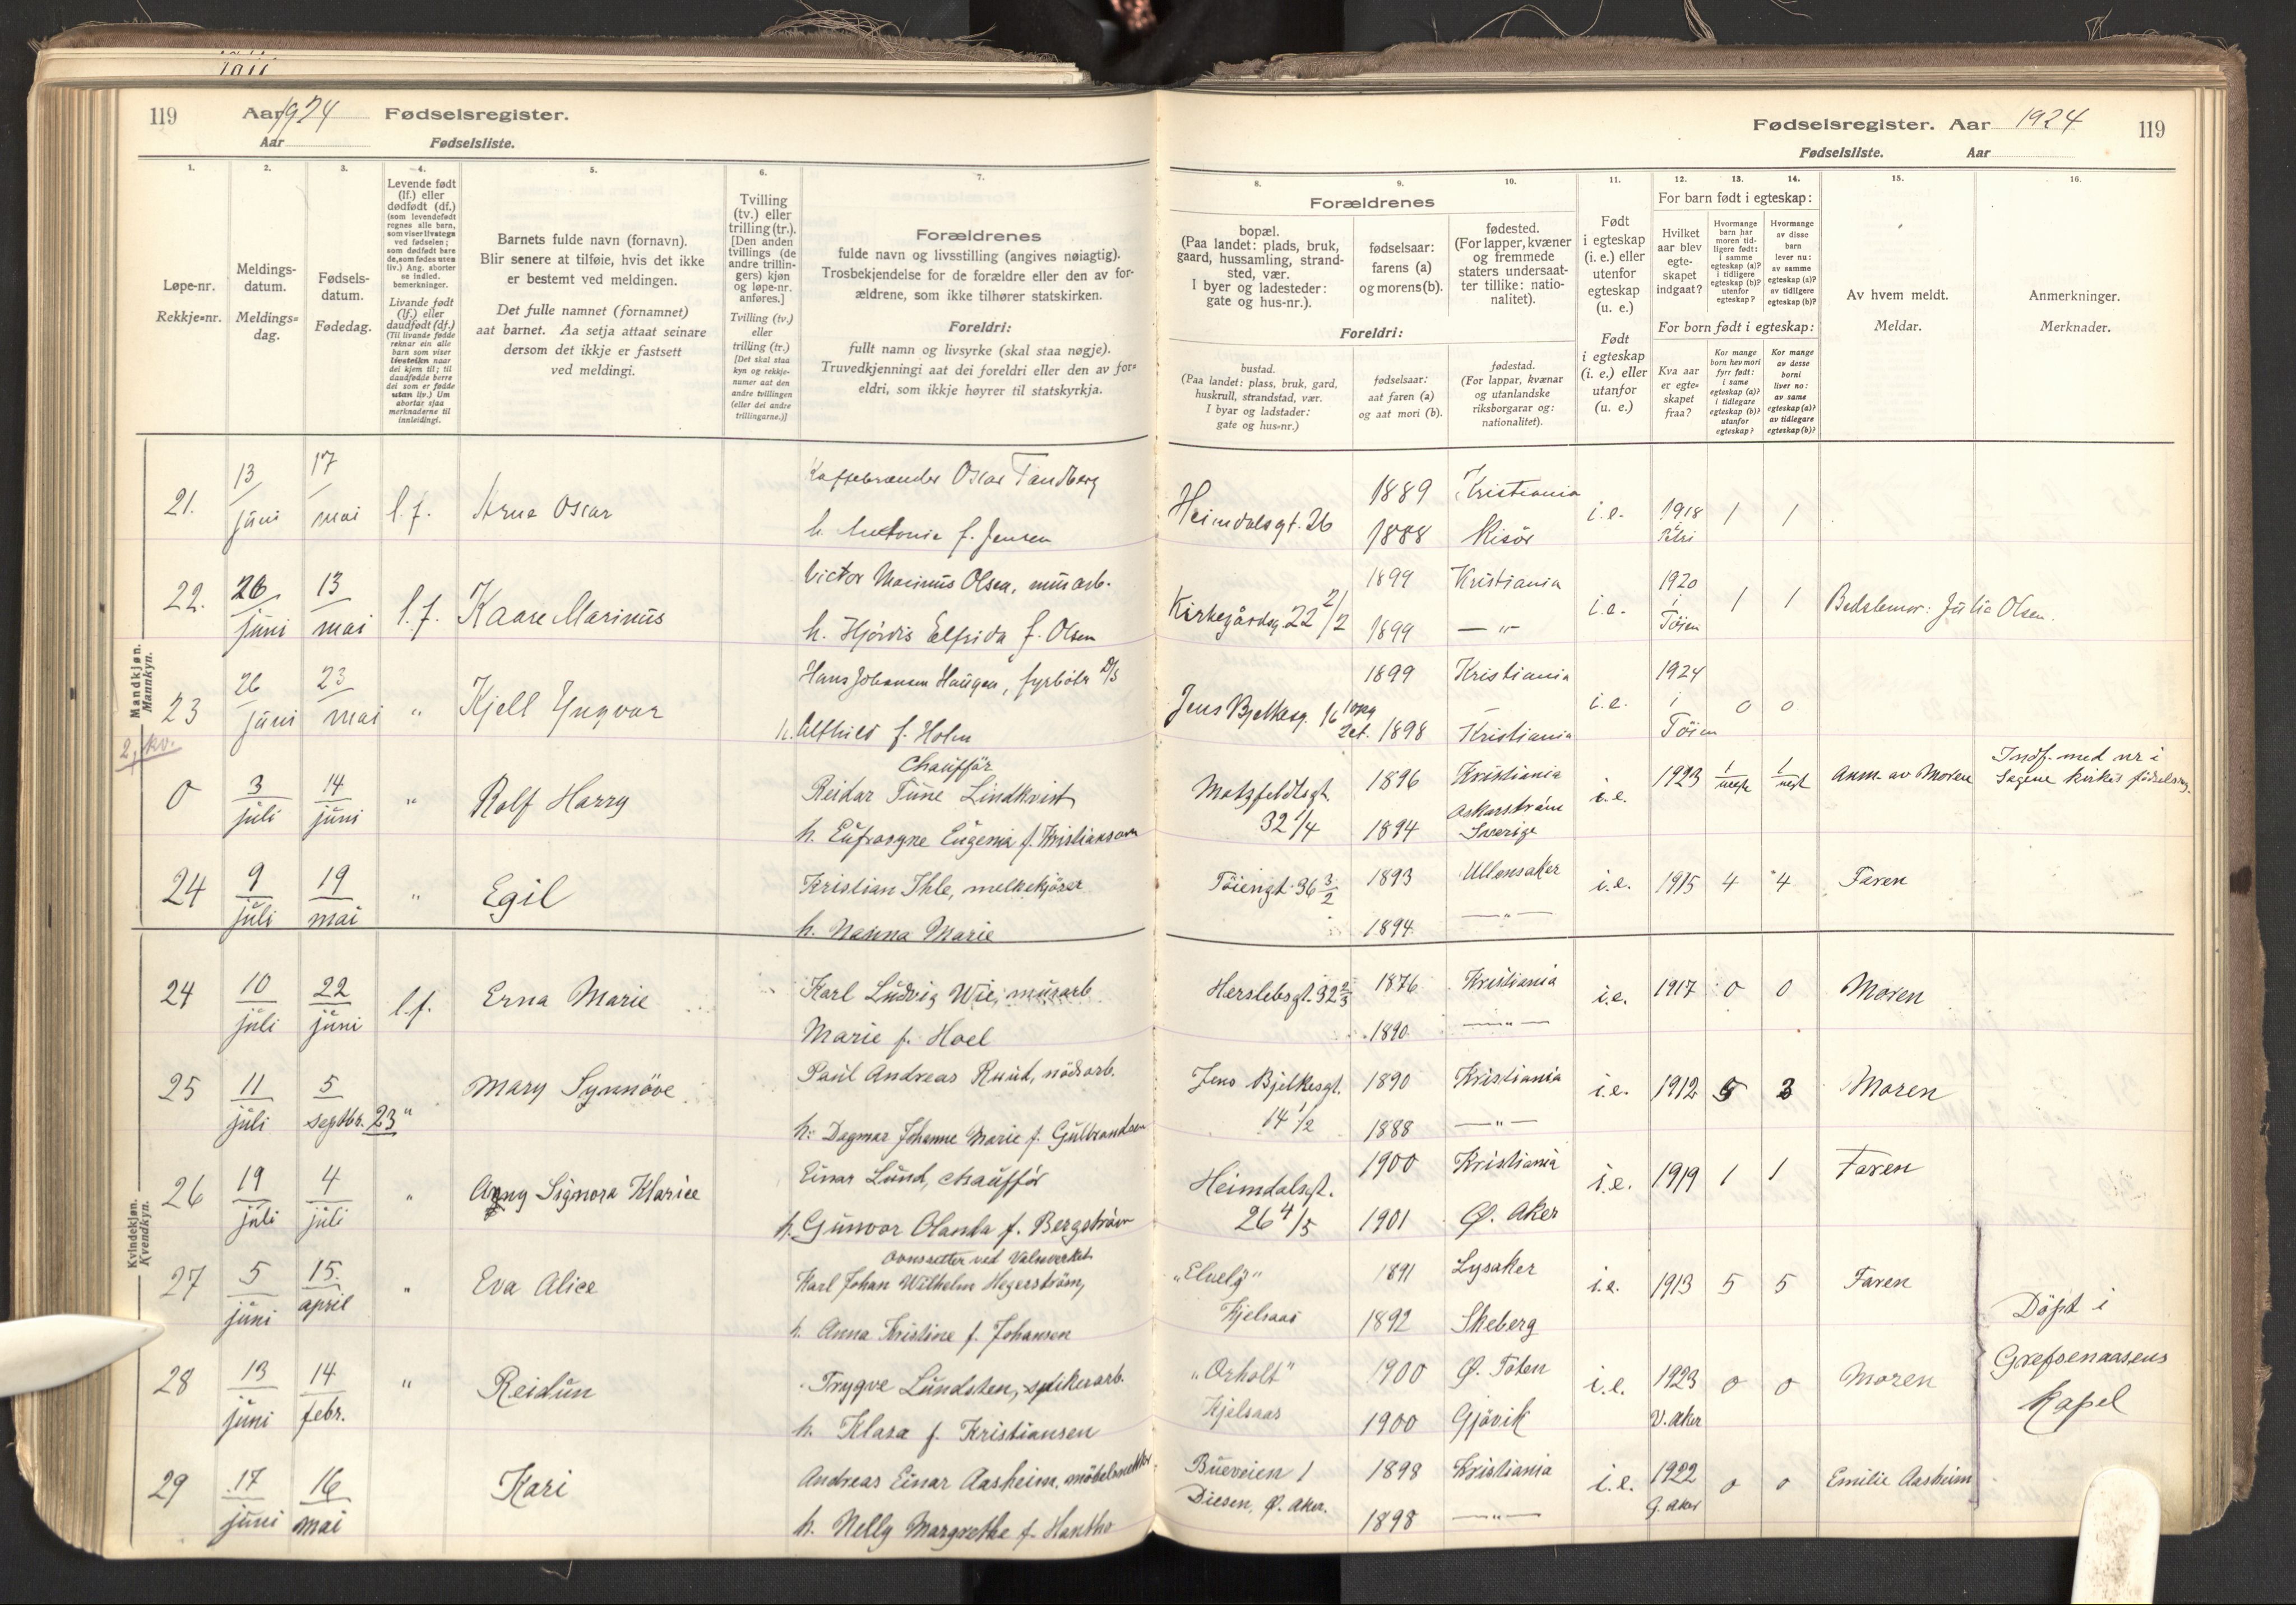 119
Aar 1924
Fødselsregister.
Aar
Fødselsliste.
1.
2.
3.
4.
5.
6.
7.
Løpe-nr.
Rekkje=nr.
Meldings-
datum.
Meldings=
dag.
Fødsels-
datum.
Fødedag.
Levende født
(lf.) eller
dødfødt (df.)
(som levendefødt
regnes alle barn,
som viser livstegn
ved fødselen;
som dødfødt bare
de, som fødes uten
liv.) Ang. aborter
se indled.
bemerkninger.
Livande født
(lf.) eller
daudfødt (df.)
(Til livande fødde
reknar ein alle
barn som viser
livsteikn naar
dei kjem til; til
daudfødde berre
dei som er fødde
utan liv.) Um
abortar sjaa
merknaderne til
innleidingi.
Barnets fulde navn (fornavn).
Blir senere at tilføie, hvis det ikke
er bestemt ved meldingen.
Det fulle namnet (fornamnet)
aat barnet. Aa setja attaat seinare
dersom det ikkje er fastsett
ved meldingi.
Tvilling
(tv.) eller
trilling (tr.).
[Den anden
tvillings (de
andre trillin-
gers) kjøn
og løpe-nr.
anføres.]
Tvilling (tv.)
eller
trilling (tr.)
[Det skal staa
kyn og rekkje-
numer aat den
andre tvillingen
(eller dei andre
trillingarne.)]
Forældrenes
fulde navn og livsstilling (angives nøiagtig).
Trosbekjendelse for de forældre eller den av for-
ældrene, som ikke tilhører statskirken.
Foreldri:
fullt namn og livsyrke (skal staa nøgje).
Truvedkjenningi aat dei foreldri eller den av for=
eldri, som ikkje høyrer til statskyrkja.
Mandkjøn.
Mannkyn.
21.
13/juni
17/mai
l.f.
Arne Oscar
Kaffebrænder Oscar Tandberg
h. Antonie f. Jensen
22.
26/juni
13/mai
l.f.
Kaare Marinus
Victor Marinus Olsen, murarb.
h. Hjördis Elfrida f. Olsen
23
26 juni
23/mai
"
Kjell Yngvar
Hans Johansen Haugen, fyrböter D/S
h. Alfhild f. Holm
2. kv.
0
3/juli
14/juni
"
Rolf Harry
Chaufför
Reidar Tune Lindkvist
h. Eufrosyne Eugenia f. Kristiansen
24
9/juli
19/mai
"
Egil
Kristian Ihle, melkekjörer
h. Nanna Marie
Kvindekjøn.
Kvendkyn.
24
10/juli
22/juni
l.f.
Erna Marie
Karl Ludvig Wie, murarb
Marie f. Hoel
25
11/juli
5/septbr. 23
"
Mary Synnöve
Paul Andreas Ruud, nödsarb.
h. Dagmar Johanne Marie f. Gulbrandsen
26
19/juli
4/juli
"
Anny Signora Klarice
Einar Lund, chaufför
h. Gunvor Olanda f. Bergström
27
5/juni
15./april
"
Eva Alice
Ovnssetter ved Valseverket
Karl Johan Wilhelm Hegerström,
h. Anna Kristine f. Johansen
28
13/juni
14/febr.
"
Reidun
Trygve Lundsten, spikerarb.
h. Klara f. Kristiansen
29
17/juni
16/mai
Kari
Andreas Einar Aasheim, möbelsnekker
h. Nelly Margrethe f. Hantho
Fødselsregister. Aar 1924
119
Fødselsliste.
Aar
8.
9.
10.
11.
12.
13.
14.
15.
16.
Forældrenes
bopæl.
(Paa landet: plads, bruk,
gaard, hussamling, strand-
sted, vær.
I byer og ladesteder:
gate og hus-nr.).
fødselsaar:
farens (a)
og morens (b).
fødested.
(For lapper, kvæner
og fremmede
staters undersaat-
ter tillike: natio-
nalitet).
Foreldri:
bustad.
(Paa landet: plass, bruk, gard,
huskrull, strandstad, vær.
I byar og ladstader:
gate og hus=nr.)
fødselsaar:
aat faren (a)
og aat mori (b).
fødestad.
(For lappar, kvænar
og utanlandske
riksborgarar og:
nationalitet).
Født
i egteskap
(i. e.) eller
utenfor
egteskap
(u. e.)
Født
i egteskap
(i. e.) eller
utanfor
(u. e.)
For barn født i egteskap:
Hvilket
aar blev
egte-
skapet
indgaat?
Hvormange
barn har
moren tid-
ligere født:
i samme
egteskap (a)?
i tidligere
egteskap (b)?
utenfor
egteskap?
Hvormange
av disse
barn
lever nu:
av samme
egteskap (a)?
av tidligere
egteskap (b)?
For born født i egteskap:
Kva aar
er egte=
skapet
fraa?
Kor mange
born hev mori
fyrr født:
i same
egteskap (a)?
i tidlegare
egteskap (b)?
utanfor
egteskap?
Kor mange
av desse
borni
liver no:
av same
egteskap (a)?
av tidlegare
egteskap (b)?
Av hvem meldt.
Meldar.
Anmerkninger.
Merknader.
Heimdalsgt. 26
1889
Kristiania
1888
Risör
i.e.
1918
Petri
1
1
Kirkegårdsg. 22 2/2
1899
Kristiania
1899
— " —
i.e.
1920
i
Töien
1
1
Bedstemor: Julie Olsen.
Jens Bjelkesg. 16
2 et.
1899
Kristiania
1898
Kristiania
i.e.
1924
i
Töien
0
0
Motzfeldtsgt.
32 1/4
1896
Kristiania
1894
Oskarström
Sverige
i.e.
1923
1/uegte
1/uegt
Anm. av Moren
Indf. med nr i
Sagene kirkes födselsreg.
Töiengt. 36 3/2
1893
Ullensaker
1894
— " —
i.e.
1915
4
4
Faren
Herslebsgt. 32 2/3
1876
Kristiania
1890
— " —
i.e.
1917
0
0
Moren
Jens Bjelkesgt.
14 1/2
1890
Kristiania
1888
— " —
i.e.
1912
5
3
Moren
Heimdalsgt.
26 4/5
1900
Kristiania
1901
Ø. Aker
i.e.
1919
1
1
Faren
"Elvely"
Kjelsaas
1891
Lysaker
1892
Skeberg
i.e.
1913
5
5
Faren
Döpt i
Grefsenaasens
Kapel
"Orholt"
Kjelsaas
1900
Ø. Toten
1900
Gjövik
i.e.
1923
V. Aker
0
0
Moren
Bueveien 1
Disen, Ø. Aker.
1898
Kristiania
1898
— " —
i.e.
1922
Ø. Aker
0
0
Emilie Aasheim